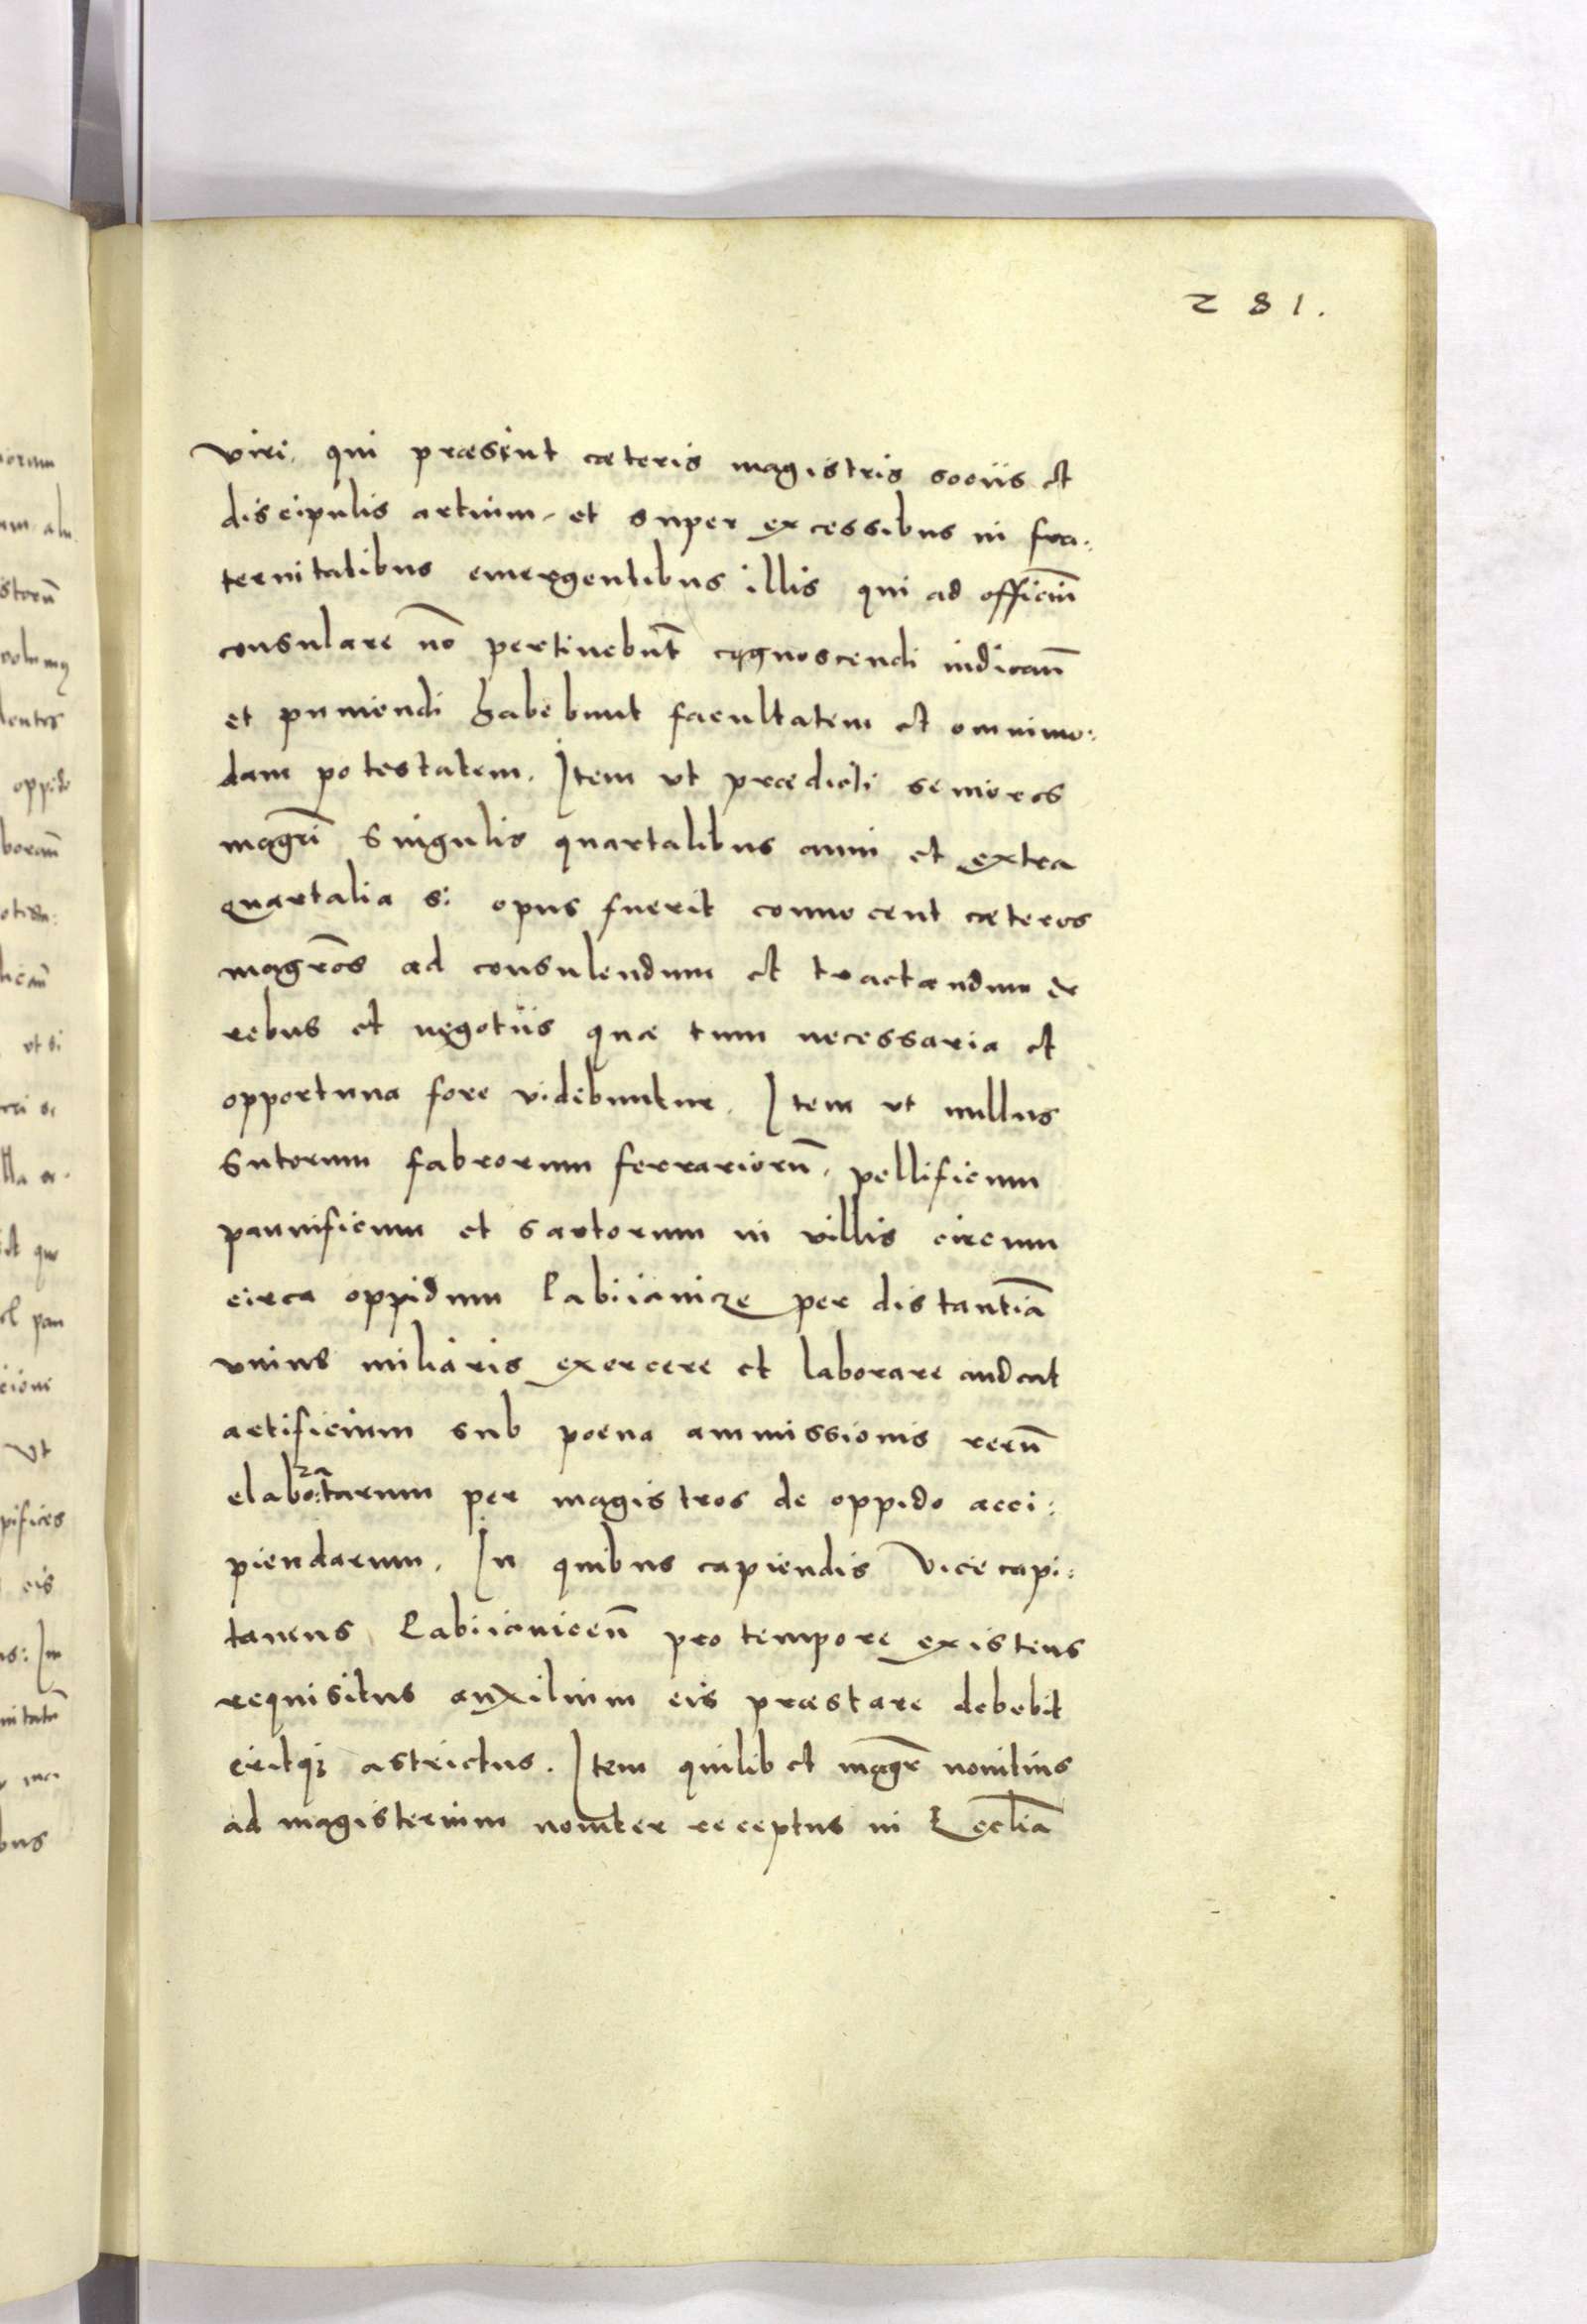 281.
viri, qui præsint cæteris magistris sociis et
discipulis artium, et super excessibus in fra:
ternitatibus emergentibus illis qui ad officiū
consulare nō pertinebūt cognoscendi iudicanī
et puniendi habebunt facultatem et omnimo:
dam potestatem. Item ut prædicti seniores
magrī singulis quartalibus anni et extra
quartalia si opus fuerit convocent cæteros
magrōs ad consulendum et tractandum de
rebus et negotiis quæ tum necessaria et
opportuna fore videbuntur. Item ut nullus
sutorum fabrorum ferrariorū, pellificum
pannificum et sartorum in villis circum
circa oppidum Pabiianicze per distantiā
unius miliaris exercere et laborare audeat
artificium sub poena ammissionis rerū
elabo:ratarum per magistros de oppido acci:
piendarum. In quibus capiendis Vicecapi:
taneus Pabiianiceń pro tempore existens
requisitus auxilium eis præstare debebit
eritq; astrictus. Item quilibet magr̄ noviter
ad magisterium noviter receptus in Eccliā